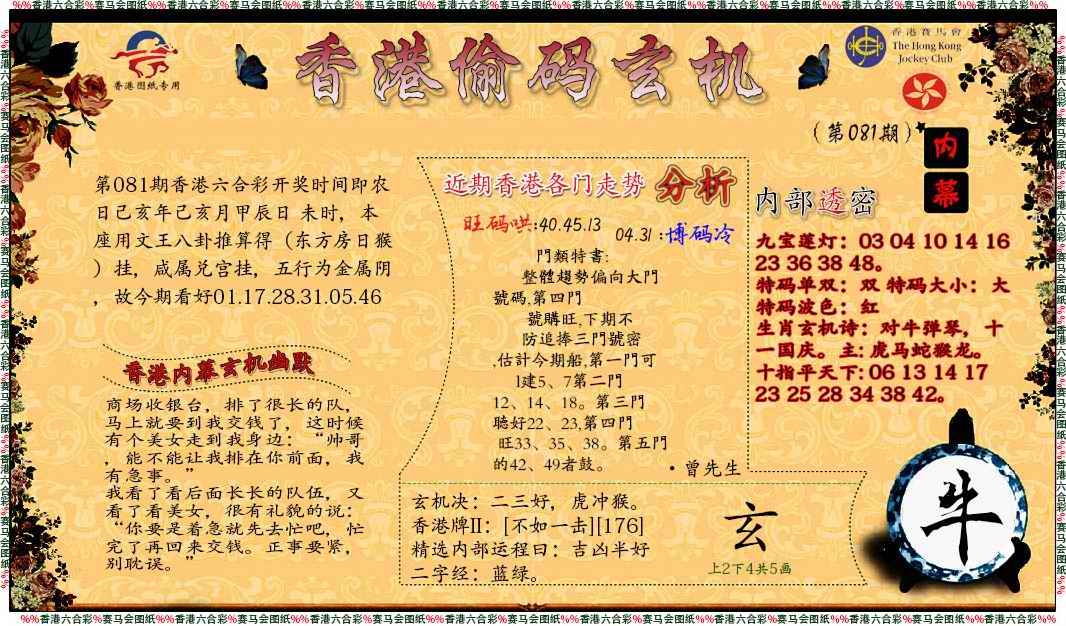 %%香港六合彩%赛马会图纸%%香港六合彩%赛马会图纸%%香港六合彩%赛马会图纸%%香港六合彩%赛马会图纸%%香港六合彩%赛马会图纸%%香港六合彩%赛马会图纸%%香港六合彩%赛马会图纸%%香港六合彩%%
香港图纸专用
香港偷码玄机
香港賽馬會
The Hong Kong
Jockey Club
(第081期)
内
幕
第081期香港六合彩开奖时间即农
日己亥年己亥月甲辰日 未时，本
座用文王八卦推算得（东方房日猴
）挂，咸属兑宫挂，五行为金属阴
，故今期看好01.17.28.31.05.46
香港内幕玄机幽默
商场收银台，排了很长的队，
马上就要到我交钱了，这时候
有个美女走到我身边：“帅哥
，能不能让我排在你前面，我
有急事。”
我看了看后面长长的队伍，又
看了看美女，很有礼貌的说：
“你要是着急就先去忙吧，忙
完了再回来交钱。正事要紧，
别耽误。”
近期香港各门走势 分析
旺码哄:40.45.13
04.31:博码冷
門類特書:
整體趨勢偏向大門
號碼,第四門
號購旺,下期不
防追捧三門號密
,估計今期船,第一門可
1建5、7第二門
12、14、18。第三門
聽好22、23,第四門
旺33、35、38。第五門
的42、49者鼓。
·曾先生
玄机决：二三好，虎冲猴。
香港牌II：[不如一击][176]
精选内部运程曰：吉凶半好
二字经：蓝绿。
玄
上2下4共5画
内部透密
九宝莲灯：03 04 10 14 16
23 36 38 48。
特码单双：双 特码大小：大
特码波色：红
生肖玄机诗：对牛弹琴，十
一国庆。主:虎马蛇猴龙。
十指平天下:06 13 14 17
23 25 28 34 38 42。
牛
%%香港六合彩%赛马会图纸%%香港六合彩%赛马会图纸%%香港六合彩%赛马会图纸%%香港六合彩%赛马会图纸%%香港六合彩%赛马会图纸%%香港六合彩%赛马会图纸%%香港六合彩%赛马会图纸%%香港六合彩%%